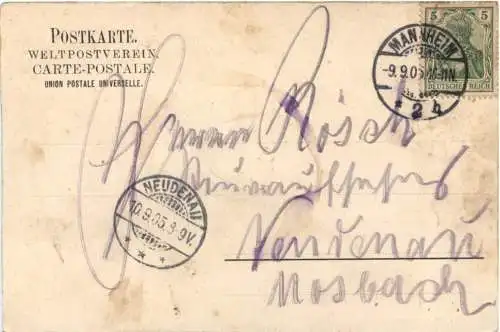 POSTKARTE.
WELTPOSTVEREIN.
CARTE-POSTALE.
UNION POSTALE UNIVERSELLE.
5 5
DEUTSCHES REICH
MANNHEIM
-9.9.05
* 2 h
Herrn Rösch
NEUDENAU
10.9.05.8-9V.
Neudenau
Mosbach